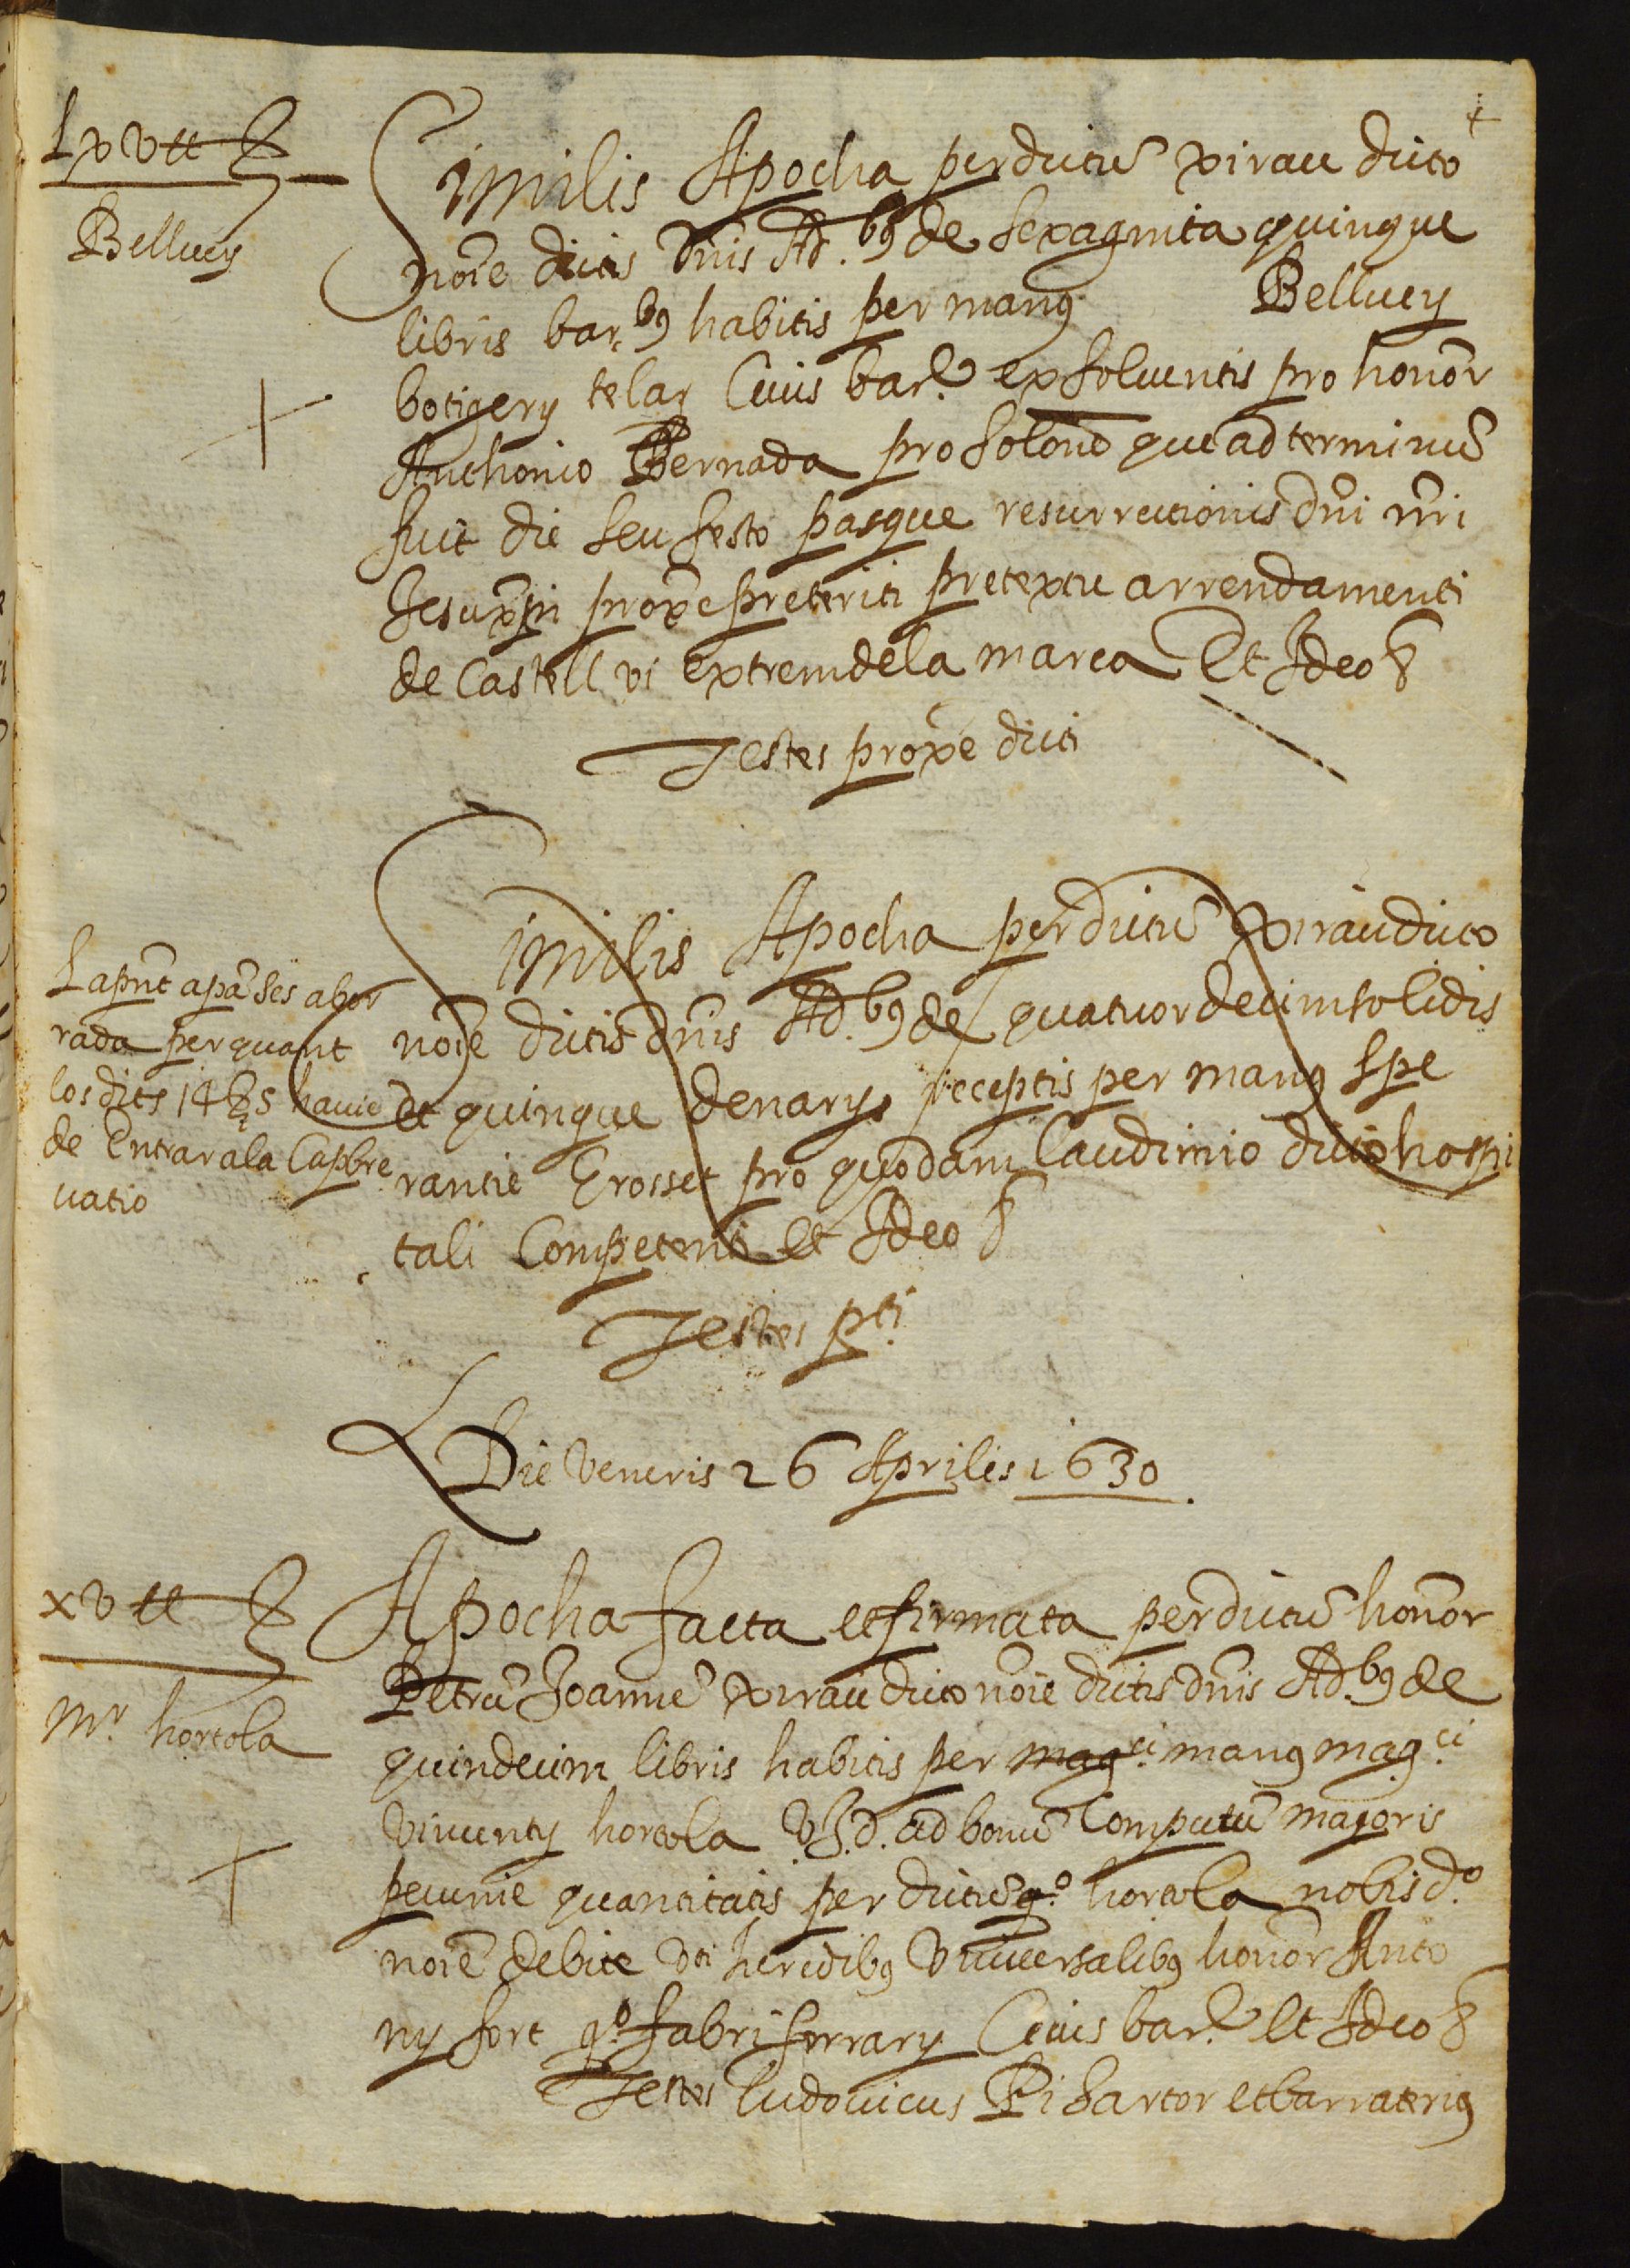 Lxv ₶
Bellvey
Similis Apocha per dictū xirau dicto
noīe dictis dn̄is Ad.bꝰ de sexaginta quinque
libris bar.bꝰ habitis per manꝰ Bellvey
botigery telaꝝ Civis barē exsolventis pro honōr
Anthonio Bernada pro solōne que ad terminū
fuit die seu festo pasque resurrectionis dn̄i nr̄i
Jesu xp̄i prox̄e preteriti pretextu arrendamenti
de Castellvi extrem de la marca Et Ideo &
Testes prox̄e dicti
La pn̄t apā ses abor
rada per quant
los dits 14 ẞ 5 havie
de Entrar a la Capbre
vatio
Similis Apocha per dictū Xirau dicto
noīe dictis dn̄is Ad.bꝰ de quatuordecim solidis
et quinque denarys receptis per manꝰ Spe
rantie Grosset pro quodam laudimio dicto hospi
tali Competenti et Ideo &
Testes pti.
Die Veneris 26 Aprilis 1630.
xv ₶
Mr. hortola
Apocha facta et firmata per dictū honōr
Petrū Joannē Xirau dicto noīe dictis dn̄is Ad.bꝰ de
quindecim libris habitis per mag.ci manꝰ mag.ci
Vincenty hortola V.J.d. ad bonū Computū majoris
pecunie quantitatis per dictū q.o hortola nobis d.o
noīe debite uti heredibꝰ Vniversalibꝰ honōr Anto
ny fort q.o fabri ferrary Civis barē Et Ideo &
Testes Ludovicus Pi Sartor et barrateriꝰ